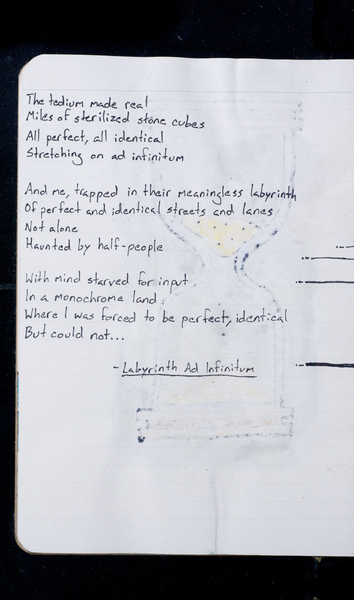 The tedium made real
Miles of sterilized stone cubes
All perfect, all identical
Stretching on ad infinitum
And me, trapped in their meaningless labyrinth
Of perfect and identical streets and lanes
Not alone
Haunted by half-people
With mind starved for input
In a monochrome land
Where I was forced to be perfect, identical
But could not...
- Labyrinth Ad Infinitum